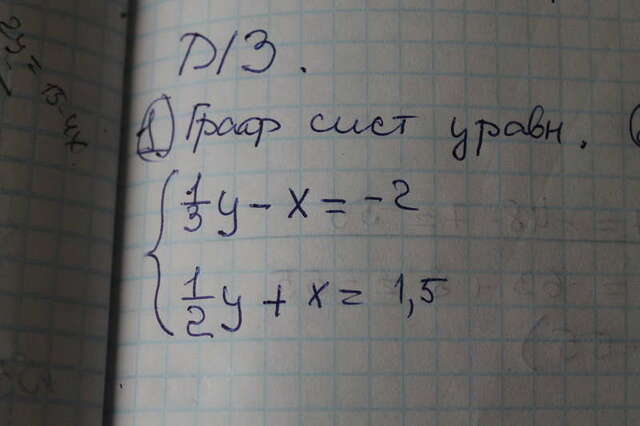 Д/З.
1) Граф сист уравн.
1/3 y - x = -2
1/2 y + x = 1,5
2y = 15-4x